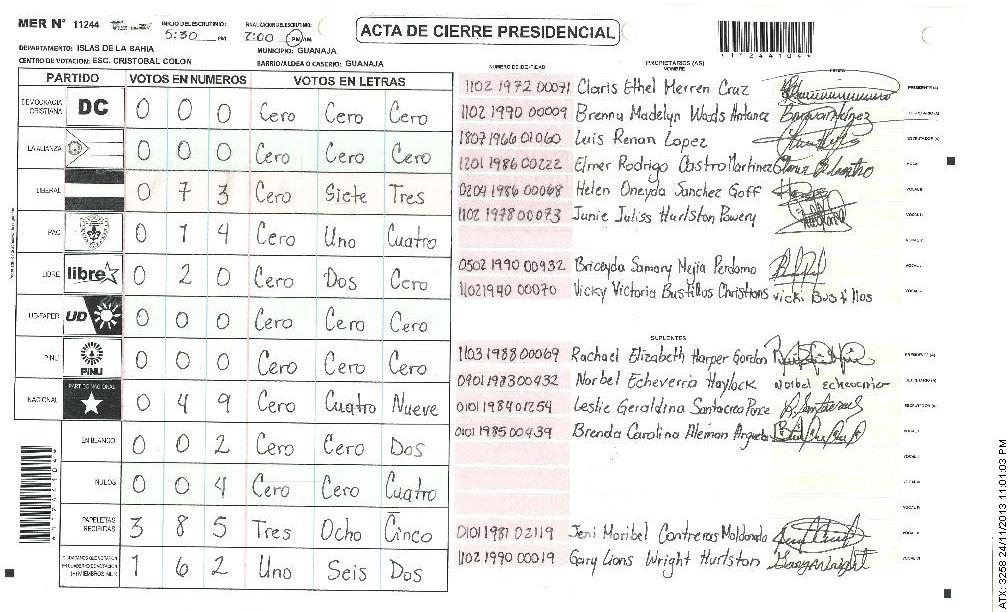 MER Nº 11244
INICIO DE ESCRUTINIO: 5:30 PM
FINALIZACION DE ESCRUTINIO: 7:00 PM
ACTA DE CIERRE PRESIDENCIAL
1124410
DEPARTAMENTO: ISLAS DE LA BAHIA
MUNICIPIO: GUANAJA
CENTRO DE VOTACION: ESC. CRISTOBAL COLON
BARRIO/ALDEA O CASERIO: GUANAJA
PARTIDO VOTOS EN NUMEROS VOTOS EN LETRAS
DEMOCRACIA CRISTIANA DC 0 0 0 Cero Cero Cero
LA ALIANZA 0 0 0 Cero Cero Cero
LIBERAL 0 7 3 Cero Siete Tres
PAC 0 1 4 Cero Uno Cuatro
LIBRE libre 0 2 0 Cero Dos Cero
UD-FAPER UD 0 0 0 Cero Cero Cero
PINU PINU 0 0 0 Cero Cero Cero
NACIONAL PARTIDO NACIONAL 0 4 9 Cero Cuatro Nueve
EN BLANCO 0 0 2 Cero Cero Dos
NULOS 0 0 4 Cero Cero Cuatro
PAPELETAS RECIBIDAS 3 8 5 Tres Ocho Cinco
1 6 2 Uno Seis Dos
NUMERO DE IDENTIDAD
PROPIETARIOS (AS)
NOMBRE
FIRMA
1102 1972 00071 Claris Ethel Merren Cruz PRESIDENTE (A)
1102 1990 00009 Brenna Madelyn Woods Antunez SECRETARIO (A)
1807 1966 01060 Luis Renan Lopez ESCRUTADOR (A)
1201 1986 00222 Elmer Rodrigo Castro Martinez VOCAL I
0204 1986 00068 Helen Oneyda Sanchez Goff VOCAL II
1102 1978 00073 Junie Juliss Hurlston Powery VOCAL III
VOCAL IV
0502 1990 00932 Briceyda Samary Mejia Perdomo VOCAL V
1102 1940 00070 Vicky Victoria Bustillos Christians Vicki Bustillos
SUPLENTES
1103 1988 00069 Rachael Elizabeth Harper Gordon PRESIDENTE (A)
0901 1983 00432 Norbel Echeverria Haylock Norbel Echeverria SECRETARIO (A)
0101 1984 01254 Leslie Geraldina Santacrea Ponce ESCRUTADOR (A)
0101 1985 00439 Brenda Carolina Aleman Argueta VOCAL I
0101 1981 02119 Jeni Maribel Contreras Maldonado
1102 1990 00019 Gary Lions Wright Hurlston
ATX: 3258 24/11/2013 11:01:03 PM